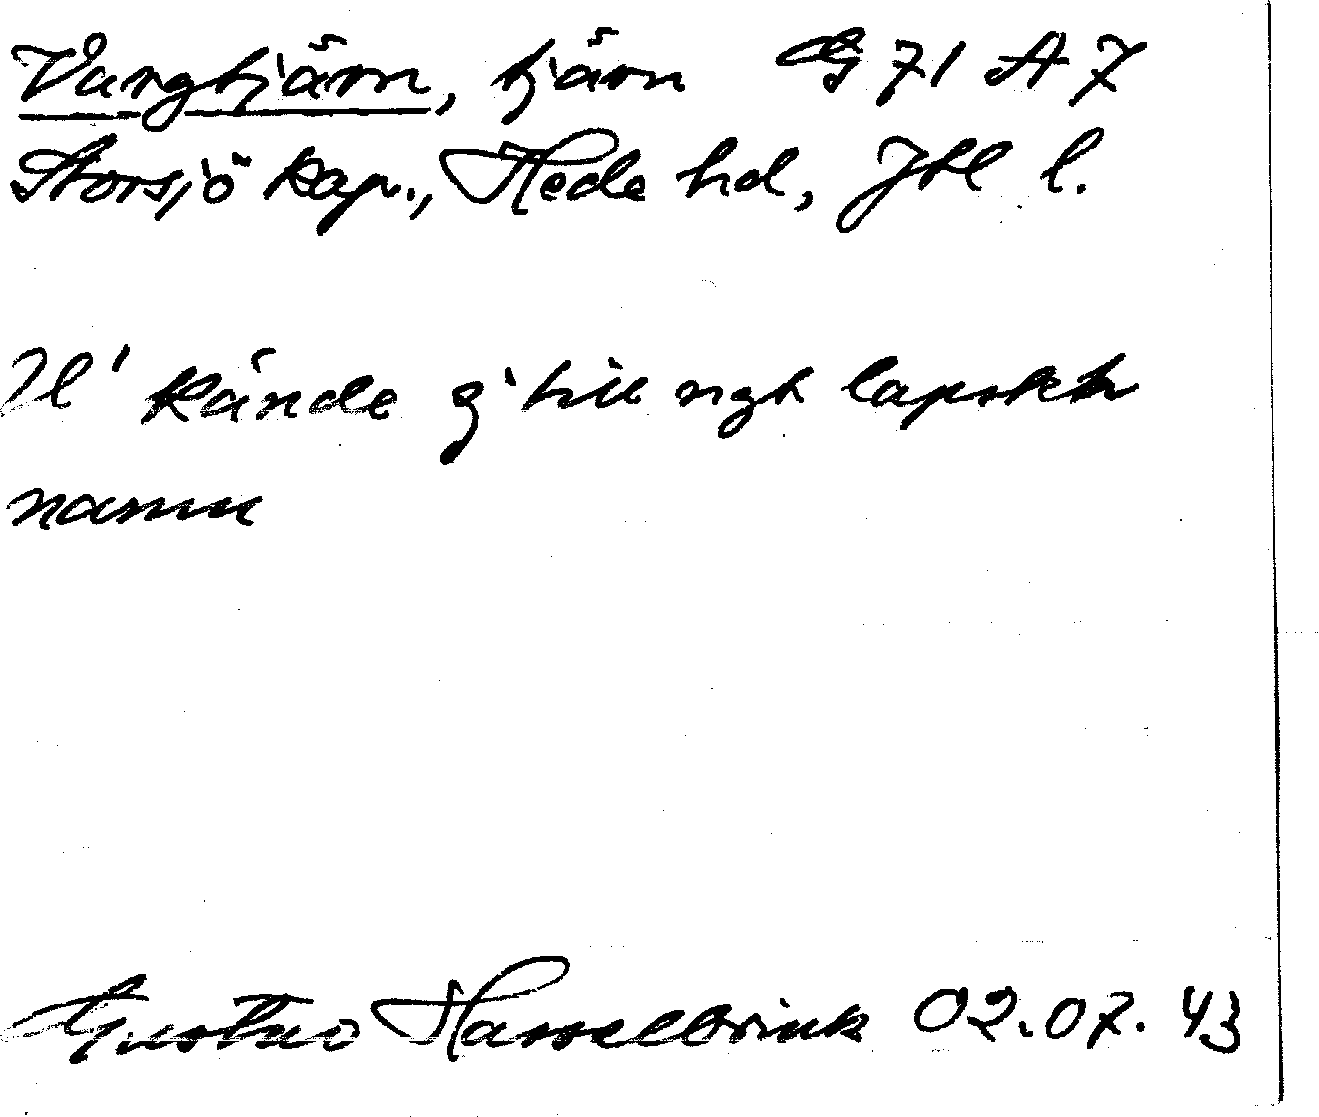 Vargtjärn, tjärn G 71 A 7
Storsjö kap., Hede hd, Jtl l.
kände ej till ngt lapskt
namn
Gustav Hasselbrink 02.07.43